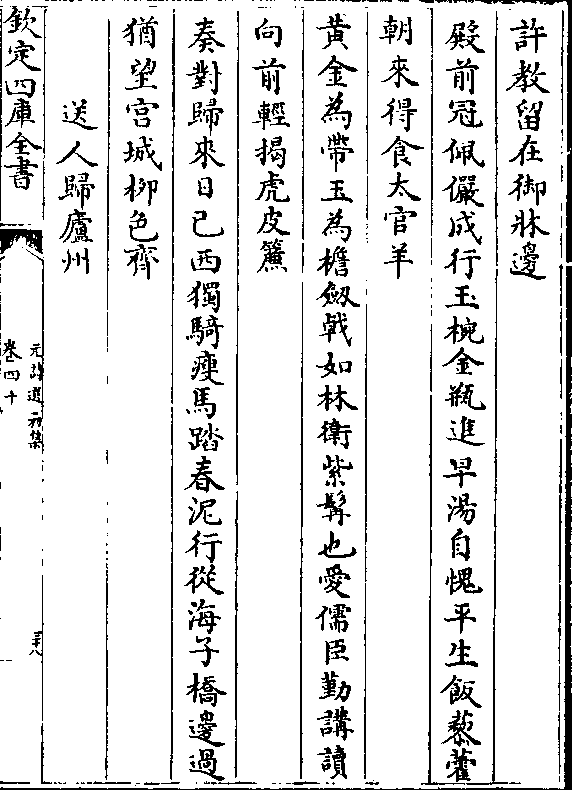 許教留在御牀邊
殿前冠佩儼成行玉椀金瓶進早湯自愧平生飯藜藿
朝來得食太官羊
黃金為帶玉為檐劔㦸如林衛紫髯也愛儒臣勤講讀
向前輕揭虎皮簾
奏對歸來日已西獨騎瘦馬踏春泥行從海子橋邊過
猶望宫城栁色齊
送人歸廬州
欽定四庫全書
元詩選 初集
卷四十
三十八